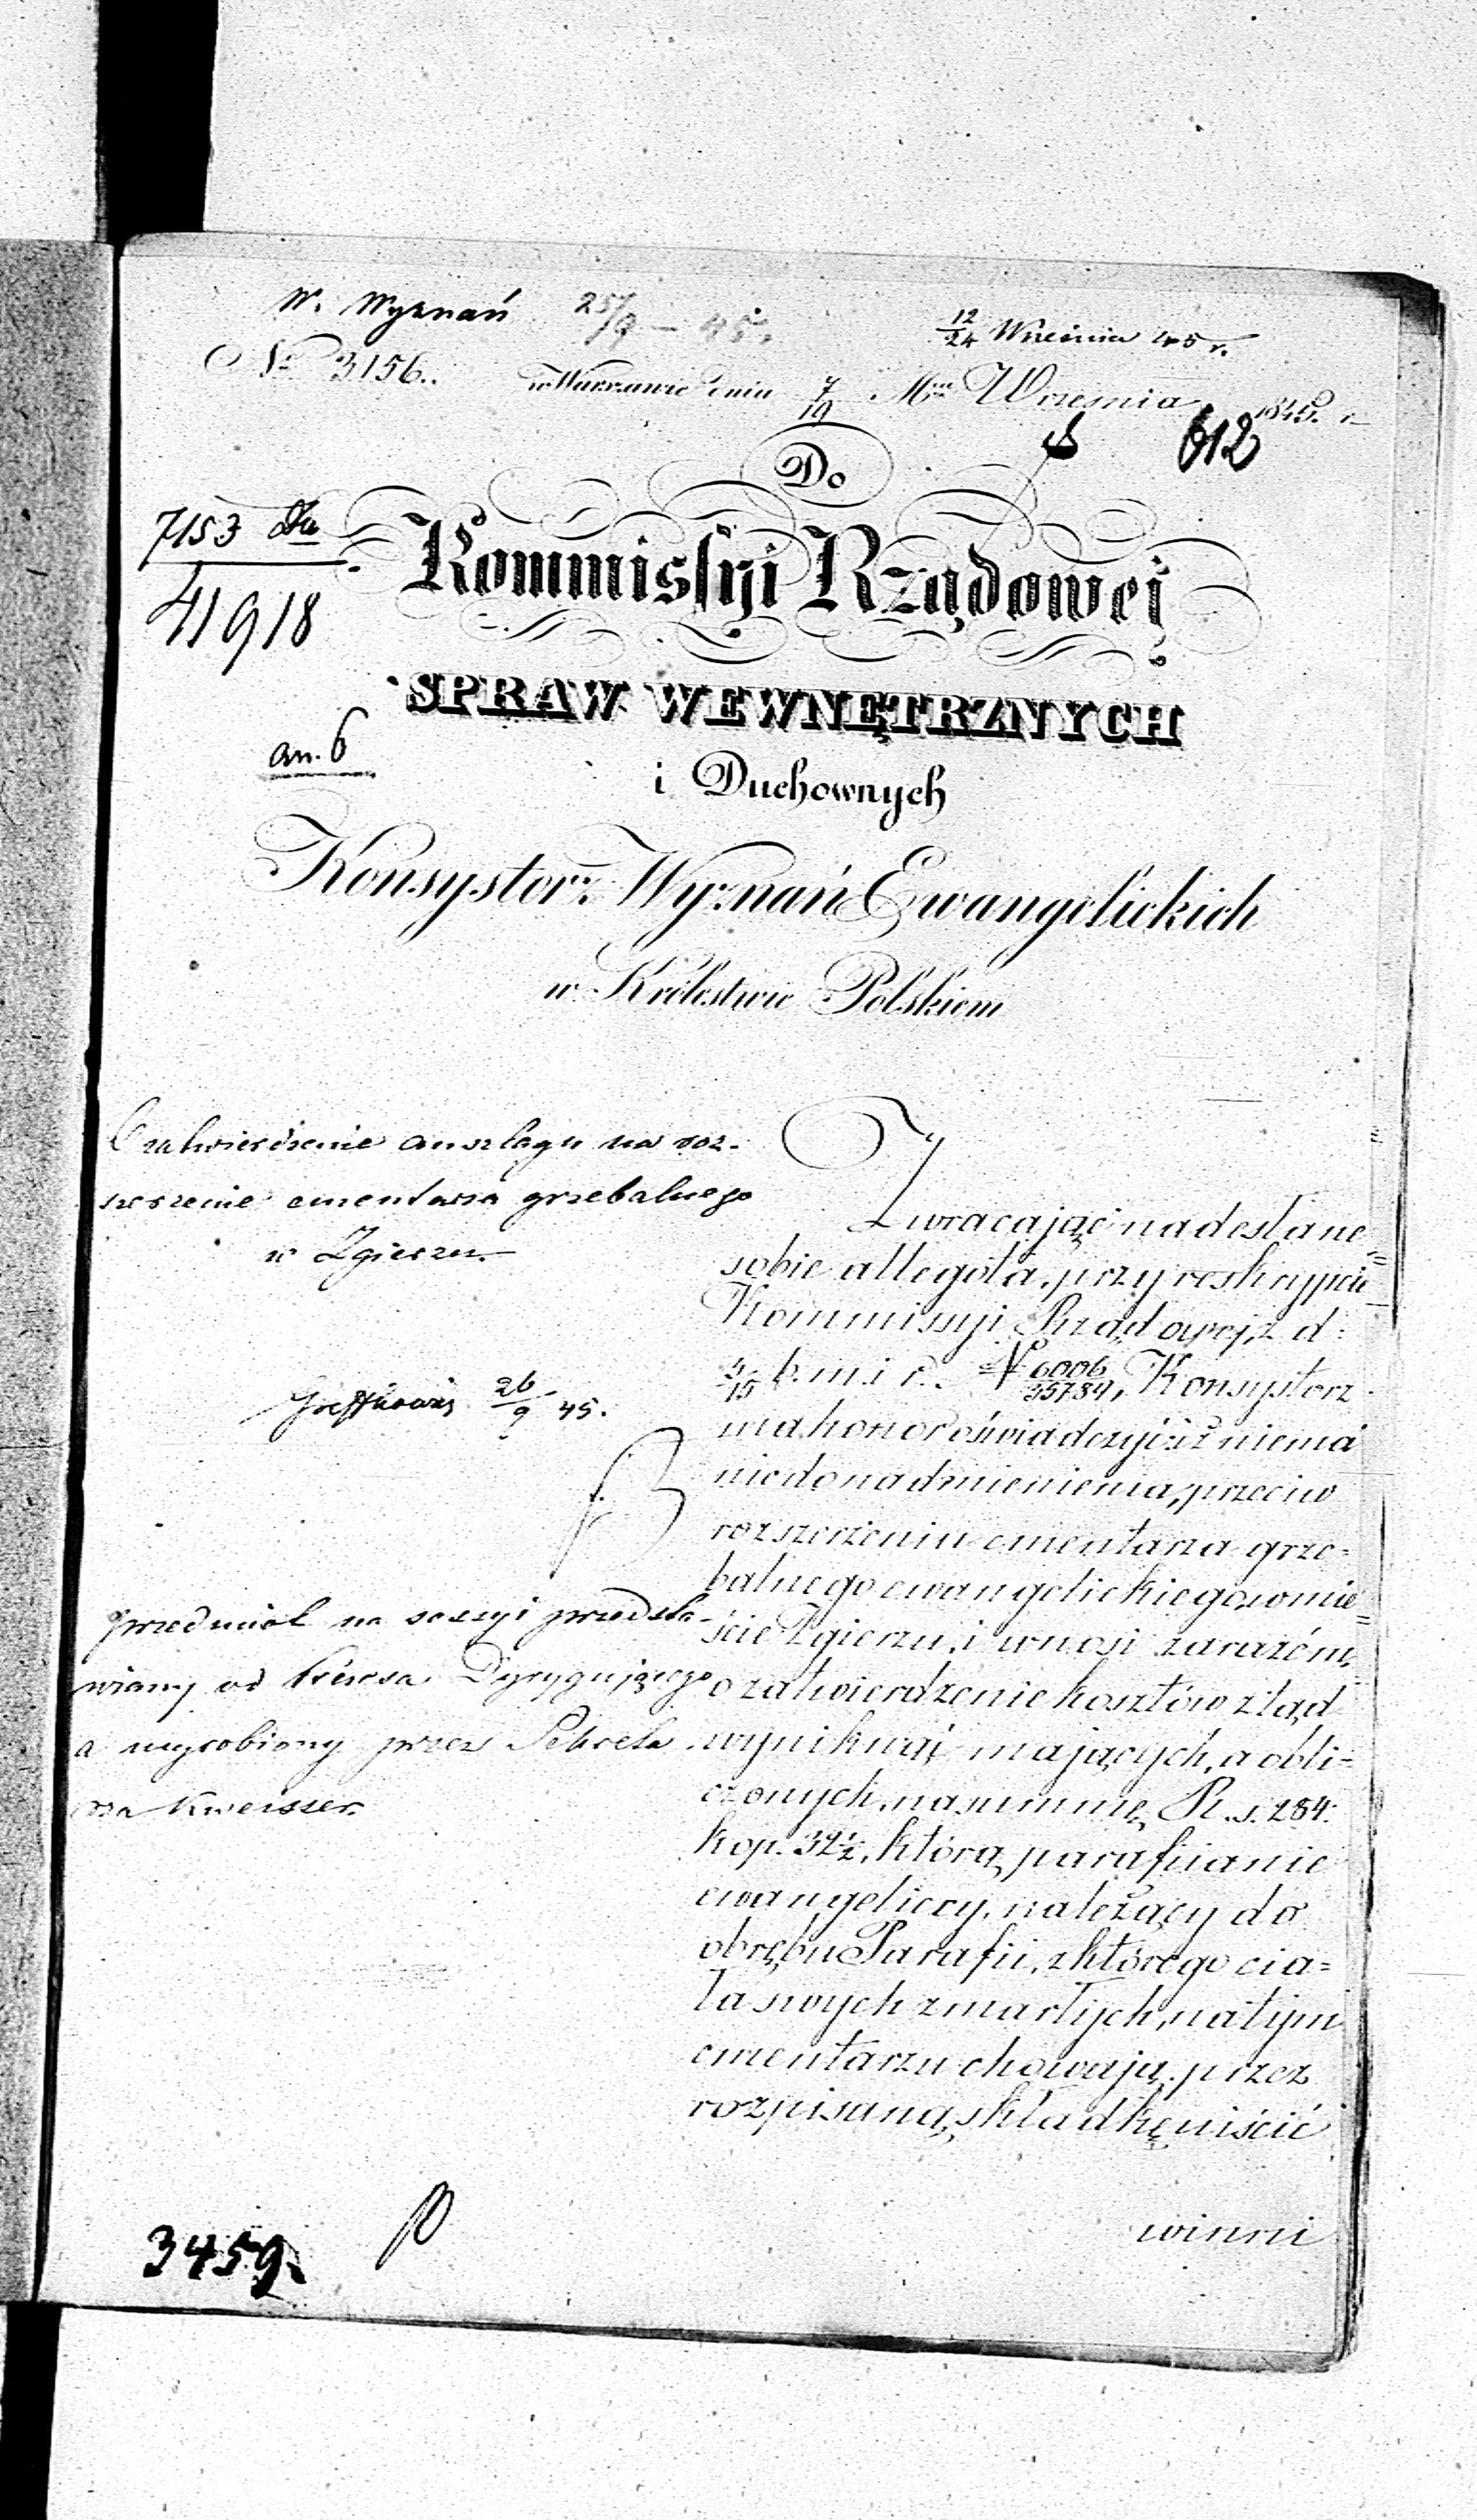 W. Wyznań 25/9 – 45.
12/24 Września 45 r.
No 3156. w Warszawie dnia 7/19 Mca Września 1845. r.
612
Do
7153
41918
Kommissyi Rządowej
SPRAW WEWNĘTRZNYCH
an. 6
i Duchownych
Konsystorz Wyznań Ewangelickich
w Królestwie Polskiem
O zatwierdzenie anszlagu na roz-
szerzenie cmentarza grzebalnego
w Zgierzu.
26/9 45.
Przedmiot na sessyi przedsta-
wiony od Prezesa Dyrygującego
a wyrobiony przez Sekreta
rza Kweisser.
Zwracając nadesłane
sobie allegata, przy reskrypcie
Kommissyi Rządowej, z d:
3/15 b. m. i r. No 6006/35784, Konsystorz
ma honor oświadczyć, iż niema
nic do nadmienienia, przeciw
rozszerzeniu cmentarza grze=
balnego ewangelickiego w mie=
ście Zgierzu, i wnosi zarazém,
o zatwierdzenie kosztów ztąd
wyniknąć mających, a obli=
czonych, na summę R. s. 284.
kop. 32½, którą parafijanie
ewangeliccy, należący do
obrębu Parafii, z którego cia=
ła swych zmarłych, na tym
cmentarzu chowają, przez
rozpisaną składkę uiścić
winni
3459.